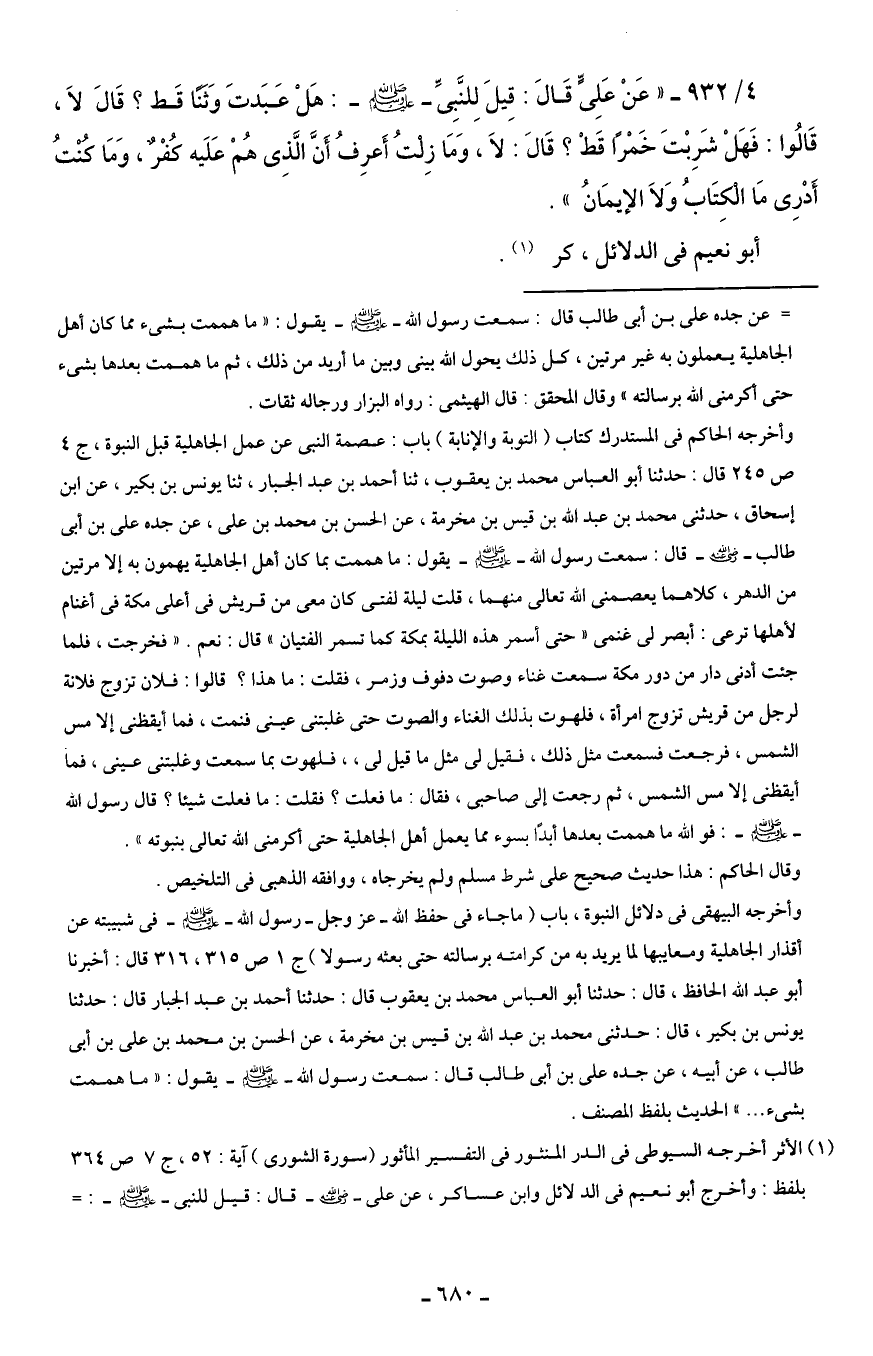 ٤/ ٩٣٢ ـ « عَنْ عَلِىٍّ قَـالَ : قِيلَ لِلنَّبِىِّ ـ ﷺ ـ : هَلْ عَـبَدتَ وَثَنًا قَـط ؟ قَالَ لاَ ،
قَالُوا : فَهَلْ شَرِبْتَ خَمْرًا قَطْ ؟ قَالَ : لاَ ، وَمَا زِلْتُ أَعرِفُ أَنَّ الَّذِى هُمْ عَلَيه كُفْرٌ ، وَمَا كُنْتُ
أَدْرِى مَا الْكِتَابُ وَلاَ الإِيمَانُ » .
أبو نعيم فى الدلائل ، كر (١) .
= عن جده على بـن أبى طالب قال : سمـعت رسول الله ـ ﷺ ـ يقـول : « ما هممت بـشىء مما كان أهل
الجاهلية يـعملون به غير مرتين ، كـل ذلك يحول الله بينى وبين ما أريد من ذلك ، ثم ما همـمت بعدها بشىء
حتى أكرمنى الله برسالته » وقال المحقق : قال الهيثمى : رواه البزار ورجاله ثقات .
وأخرجه الحاكم فى المستدرك كتاب ( التوبة والإنابة ) باب : عـصمة النبى عن عمل الجاهلية قبل النبوة ، ج ٤
ص ٢٤٥ قال : حدثنا أبو العباس محمد بن يعقـوب ، ثنا أحمد بن عبد الجبار ، ثنا يونس بن بكير ، عن ابن
إسحاق ، حدثنى محمد بن عبد الله بن قيس بن مخرمة ، عن الحسن بن محمد بن على ، عن جده على بن أبى
طالب ـ رضي الله عنه ـ قال : سمعت رسول الله ـ ﷺ ـ يقول : ما هممت بما كان أهل الجاهلية يهمون به إلا مرتين
من الدهر ، كلاهـما يعصـمنى الله تعالى منهـما ، قلت ليلة لفتـى كان معى من قـريش فى أعلى مكة فى أغنام
لأهلها ترعى : أبصر لى غنمى « حتى أسمر هذه الليلة بمكة كما تسمر الفتيان » قال : نعم . « فخرجت ، فلما
جئت أدنى دار من دور مكة سـمعت غناء وصوت دفوف وزمـر ، فقلت : ما هذا ؟ قالوا : فـلان تزوج فلانة
لرجل من قريش تزوج امرأة ، فلهـوت بذلك الغناء والصوت حتى غلبتنى عيـنى فنمت ، فما أيقظنى إلا مس
الشمس ، فرجـعت فسمعت مثل ذلك ، فـقيل لى مثل ما قيل لى ، ، فـلهوت بما سمعت وغلبتنى عـينى ، فما
أيقظنى إلا مس الشمس ، ثم رجعت إلى صاحبى ، فقال : ما فعلت ؟ فقلت : ما فعلت شيئا ؟ قال رسول الله
ـ ﷺ ـ : فو الله ما هممت بعدها أبدًا بسوء مما يعمل أهل الجاهلية حتى أكرمنى الله تعالى بنبوته » .
وقال الحاكم : هذا حديث صحيح على شرط مسلم ولم يخرجاه ، ووافقه الذهبى فى التلخيص .
وأخرجه البيهقى فى دلائل النبوة ، باب ( ماجـاء فى حفظ الله ـ عز وجل ـ رسول الله ـ ﷺ ـ فى شبيبته عن
أقذار الجاهلية ومـعايبها لما يريد به من كرامتـه برسالته حتى بعثه رسـولا ) ج ١ ص ٣١٥ ، ٣١٦ قال : أخبرنا
أبو عبد الله الحافظ ، قال : حدثنا أبو العـباس محمد بن يعقوب قال : حدثنا أحمد بن عـبد الجبار قال : حدثنا
يونس بن بكير ، قال : حـدثنى محمد بن عبد الله بن قـيس بن مخرمة ، عن الحسن بن مـحمد بن على بن أبى
طالب ، عن أبيـه ، عن جـده على بن أبى طـالب قـال : سمـعت رسـول الله ـ ﷺ ـ يقـول : « مـا همـمت
بشىء... » الحديث بلفظ المصنف .
(١) الأثر أخـرجـه السيوطى فى الـدر المـنثـور فى التفـسير المأثور (سـورة الشورى ) آية : ٥٢ ، ج ٧ ص ٣٦٤
بلفظ : وأخـرج أبو نـعيـم فى الد لائل وابن عـساكـر ، عن على ـ رضي الله عنه ـ قـال : قـيـل للنبى ـ ﷺ ـ : =
ـ ٦٨٠ ـ